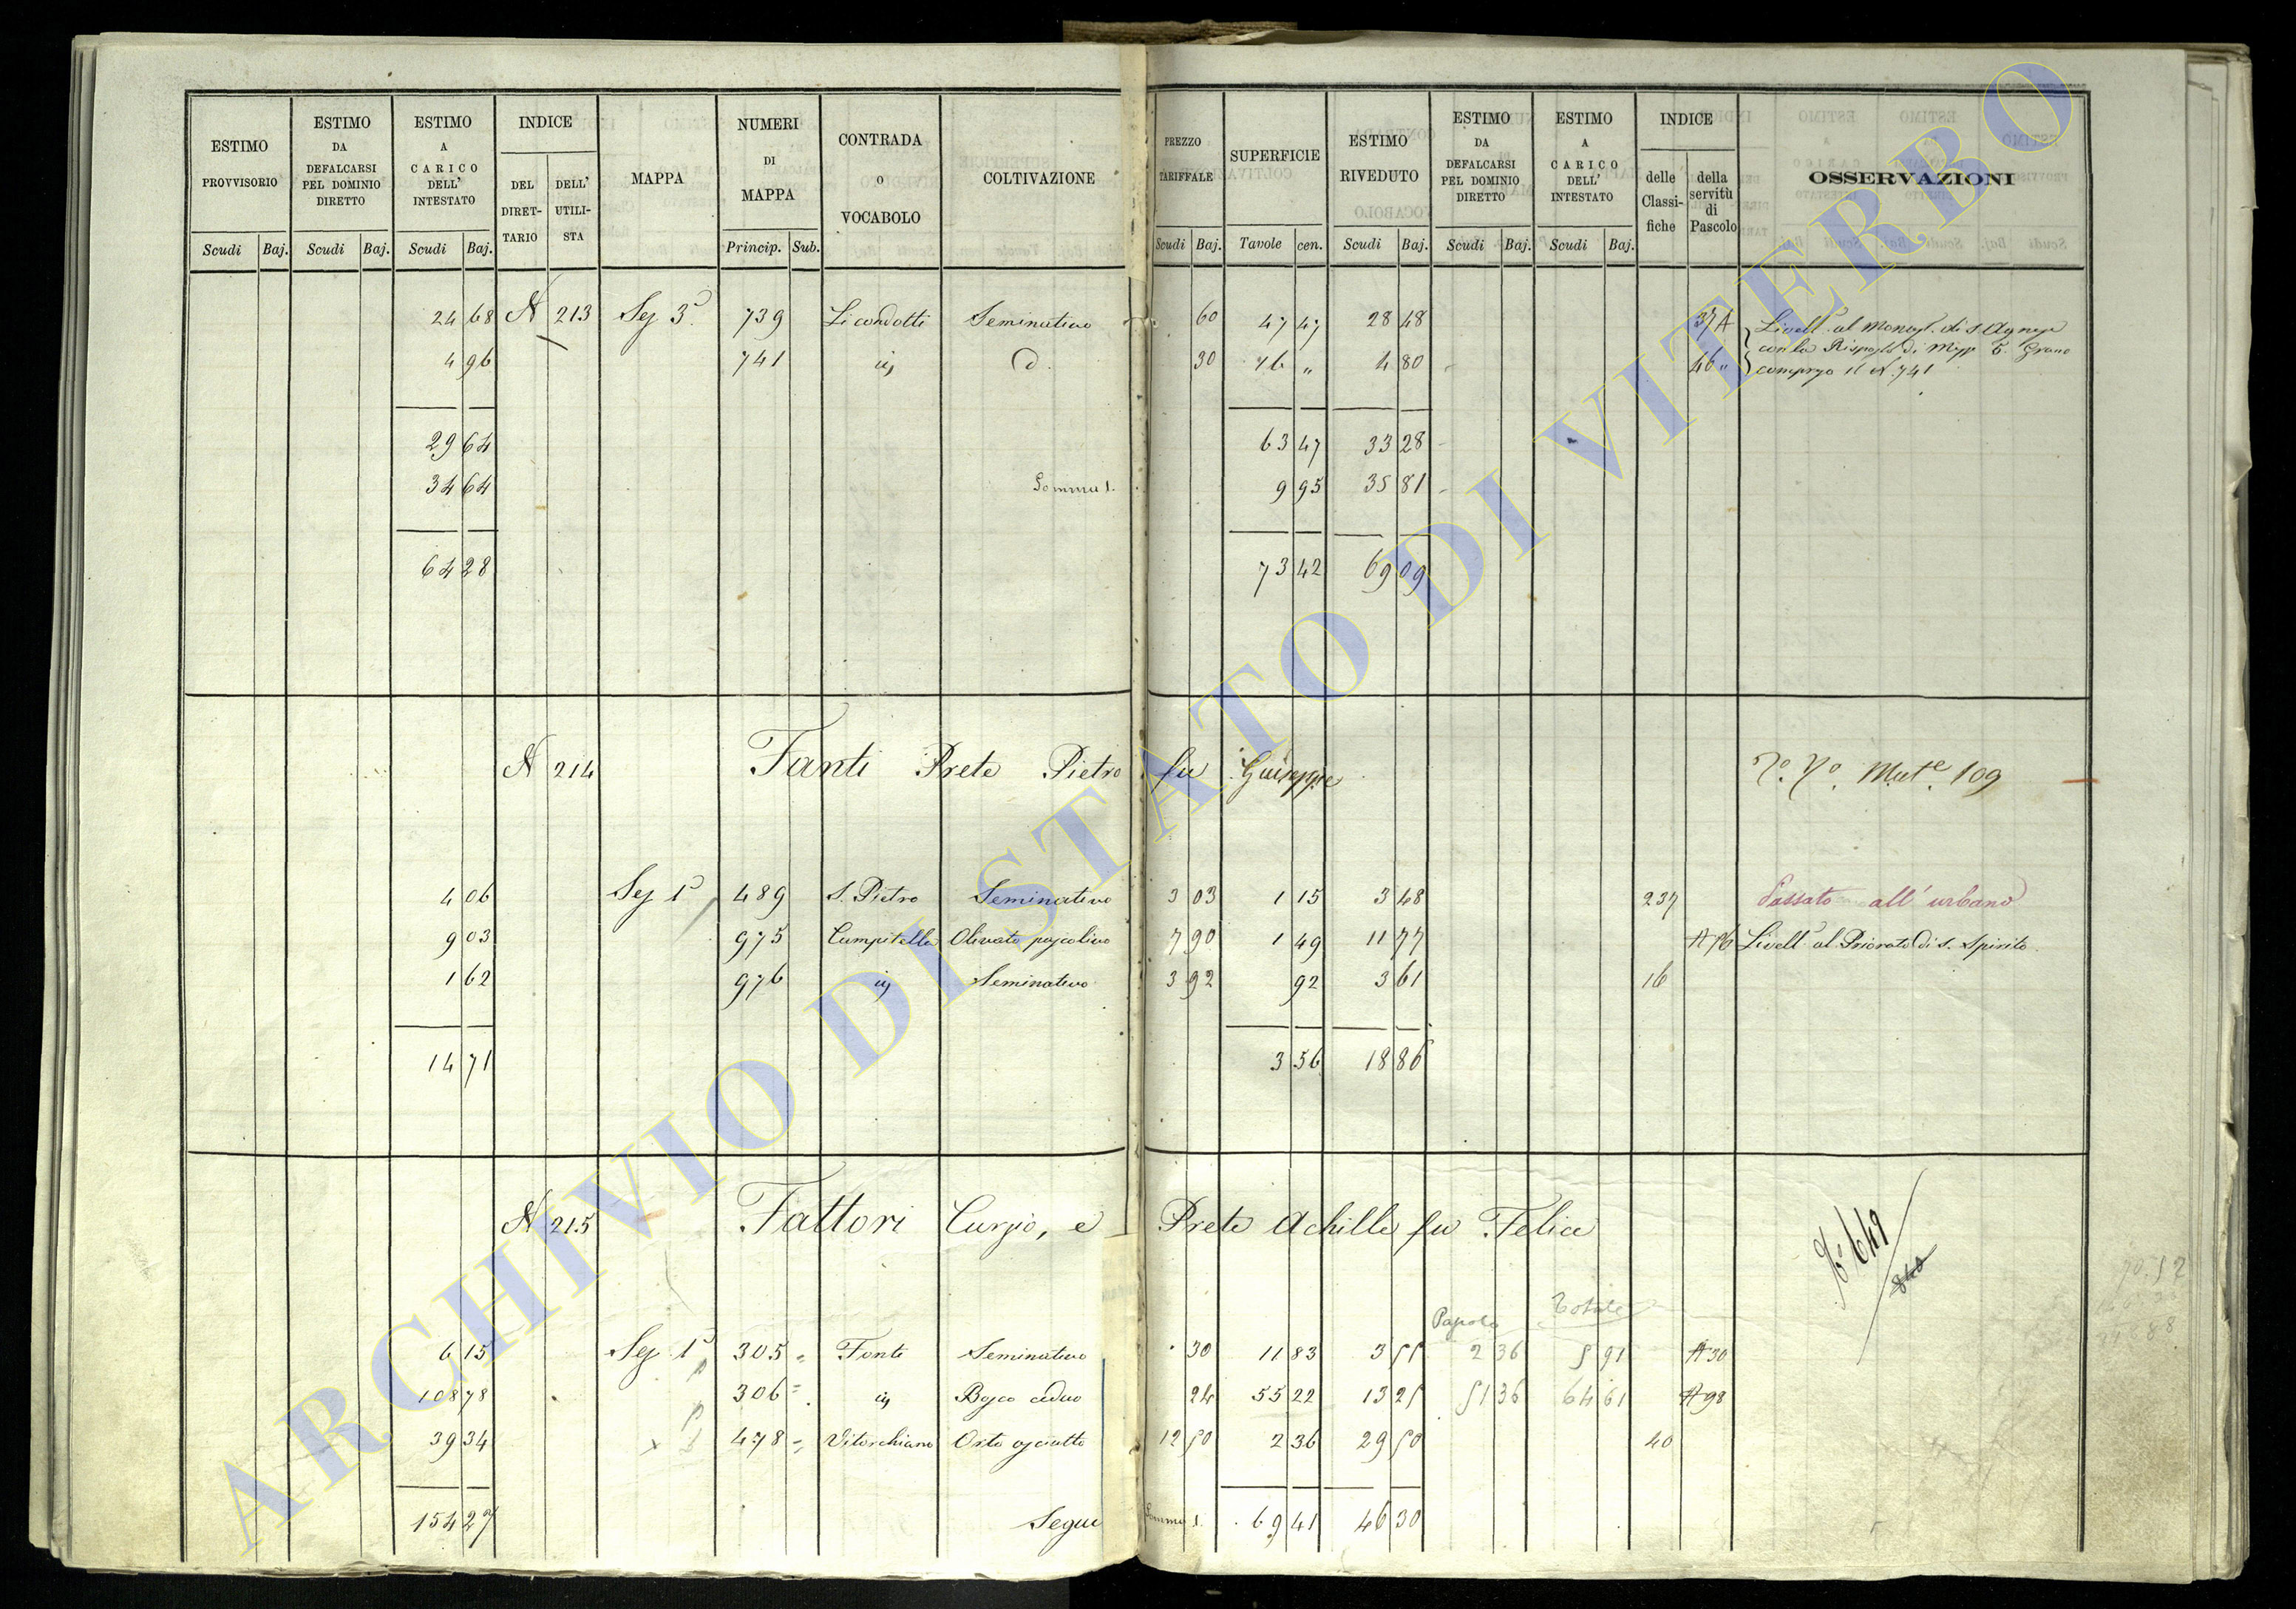 ESTIMO PROVVISORIO Scudi Baj.
ESTIMO DA DEFALCARSI PEL DOMINIO DIRETTO Scudi Baj.
ESTIMO A CARICO DELL' INTESTATO Scudi Baj.
INDICE DEL DIRET-TARIO DELL' UTILI-STA
MAPPA
NUMERI DI MAPPA Princip. Sub.
CONTRADA O VOCABOLO
COLTIVAZIONE
PREZZO TARIFFALE Scudi Baj.
SUPERFICIE Tavole cen.
ESTIMO RIVEDUTO Scudi Baj.
ESTIMO DA DEFALCARSI PEL DOMINIO DIRETTO Scudi Baj.
ESTIMO A CARICO DELL' INTESTATO Scudi Baj.
INDICE delle Classi-fiche della servitù di Pascolo
OSSERVAZIONI
24 68 N 213 Sez 3ª 739 Li condotti Seminativo 60 47 47 28 48 37 A Livell. al Monast. di S. Agnese
4 96 741 id D. 30 16 " 4 80 46 " con la Risposta di Mog. 5. Grano
compreso il N. 741
29 64 63 47 33 28
34 64 Somma 1. 9 95 35 81
64 28 73 42 69 09
N 214 Fanti Prete Pietro fu Giuseppe Mut.e 109
4 06 Sez 1ª 489 S. Pietro Seminativo 3 03 1 15 3 48 237 Passato all' urbano
9 03 975 Campitello Olivato pascolivo 7 90 1 49 11 77 A 96 Livell. al Priorato di S. Spirito.
1 62 976 id Seminativo 3 92 92 3 61 16
14 71 3 56 18 86
N 215 Fattori Curzio, e Prete Achille fu Felice
N° 649
840
Totale
6 15 Sez 1ª 305 Fonte Seminativo 30 11 83 3 55 2 36 5 91 A 30
108 78 306 id Bosco ceduo 24 55 22 13 25 51 36 64 61 A 98
39 34 478 Vitorchiano Orto asciutto 12 50 2 36 29 50 40
154 27 Segue Somma 1. 69 41 46 30
ARCHIVIO DI STATO DI VITERBO